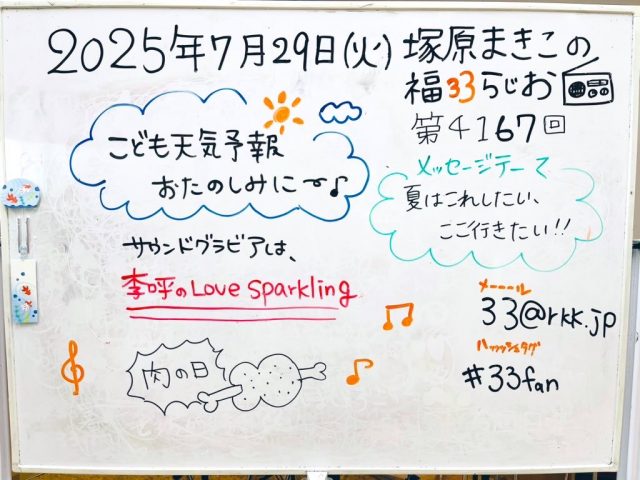 2025年7月29日(火) 塚原まきこの
福33らじお
第4167回
こども天気予報
おたのしみに〜♪
メッセージテーマ
夏はこれしたい、
ここ行きたい!!
サウンドグラビアは、
李呼のLove Sparkling
メーーール
33@rkk.jp
ハッッシュタグ
#33fan
肉の日